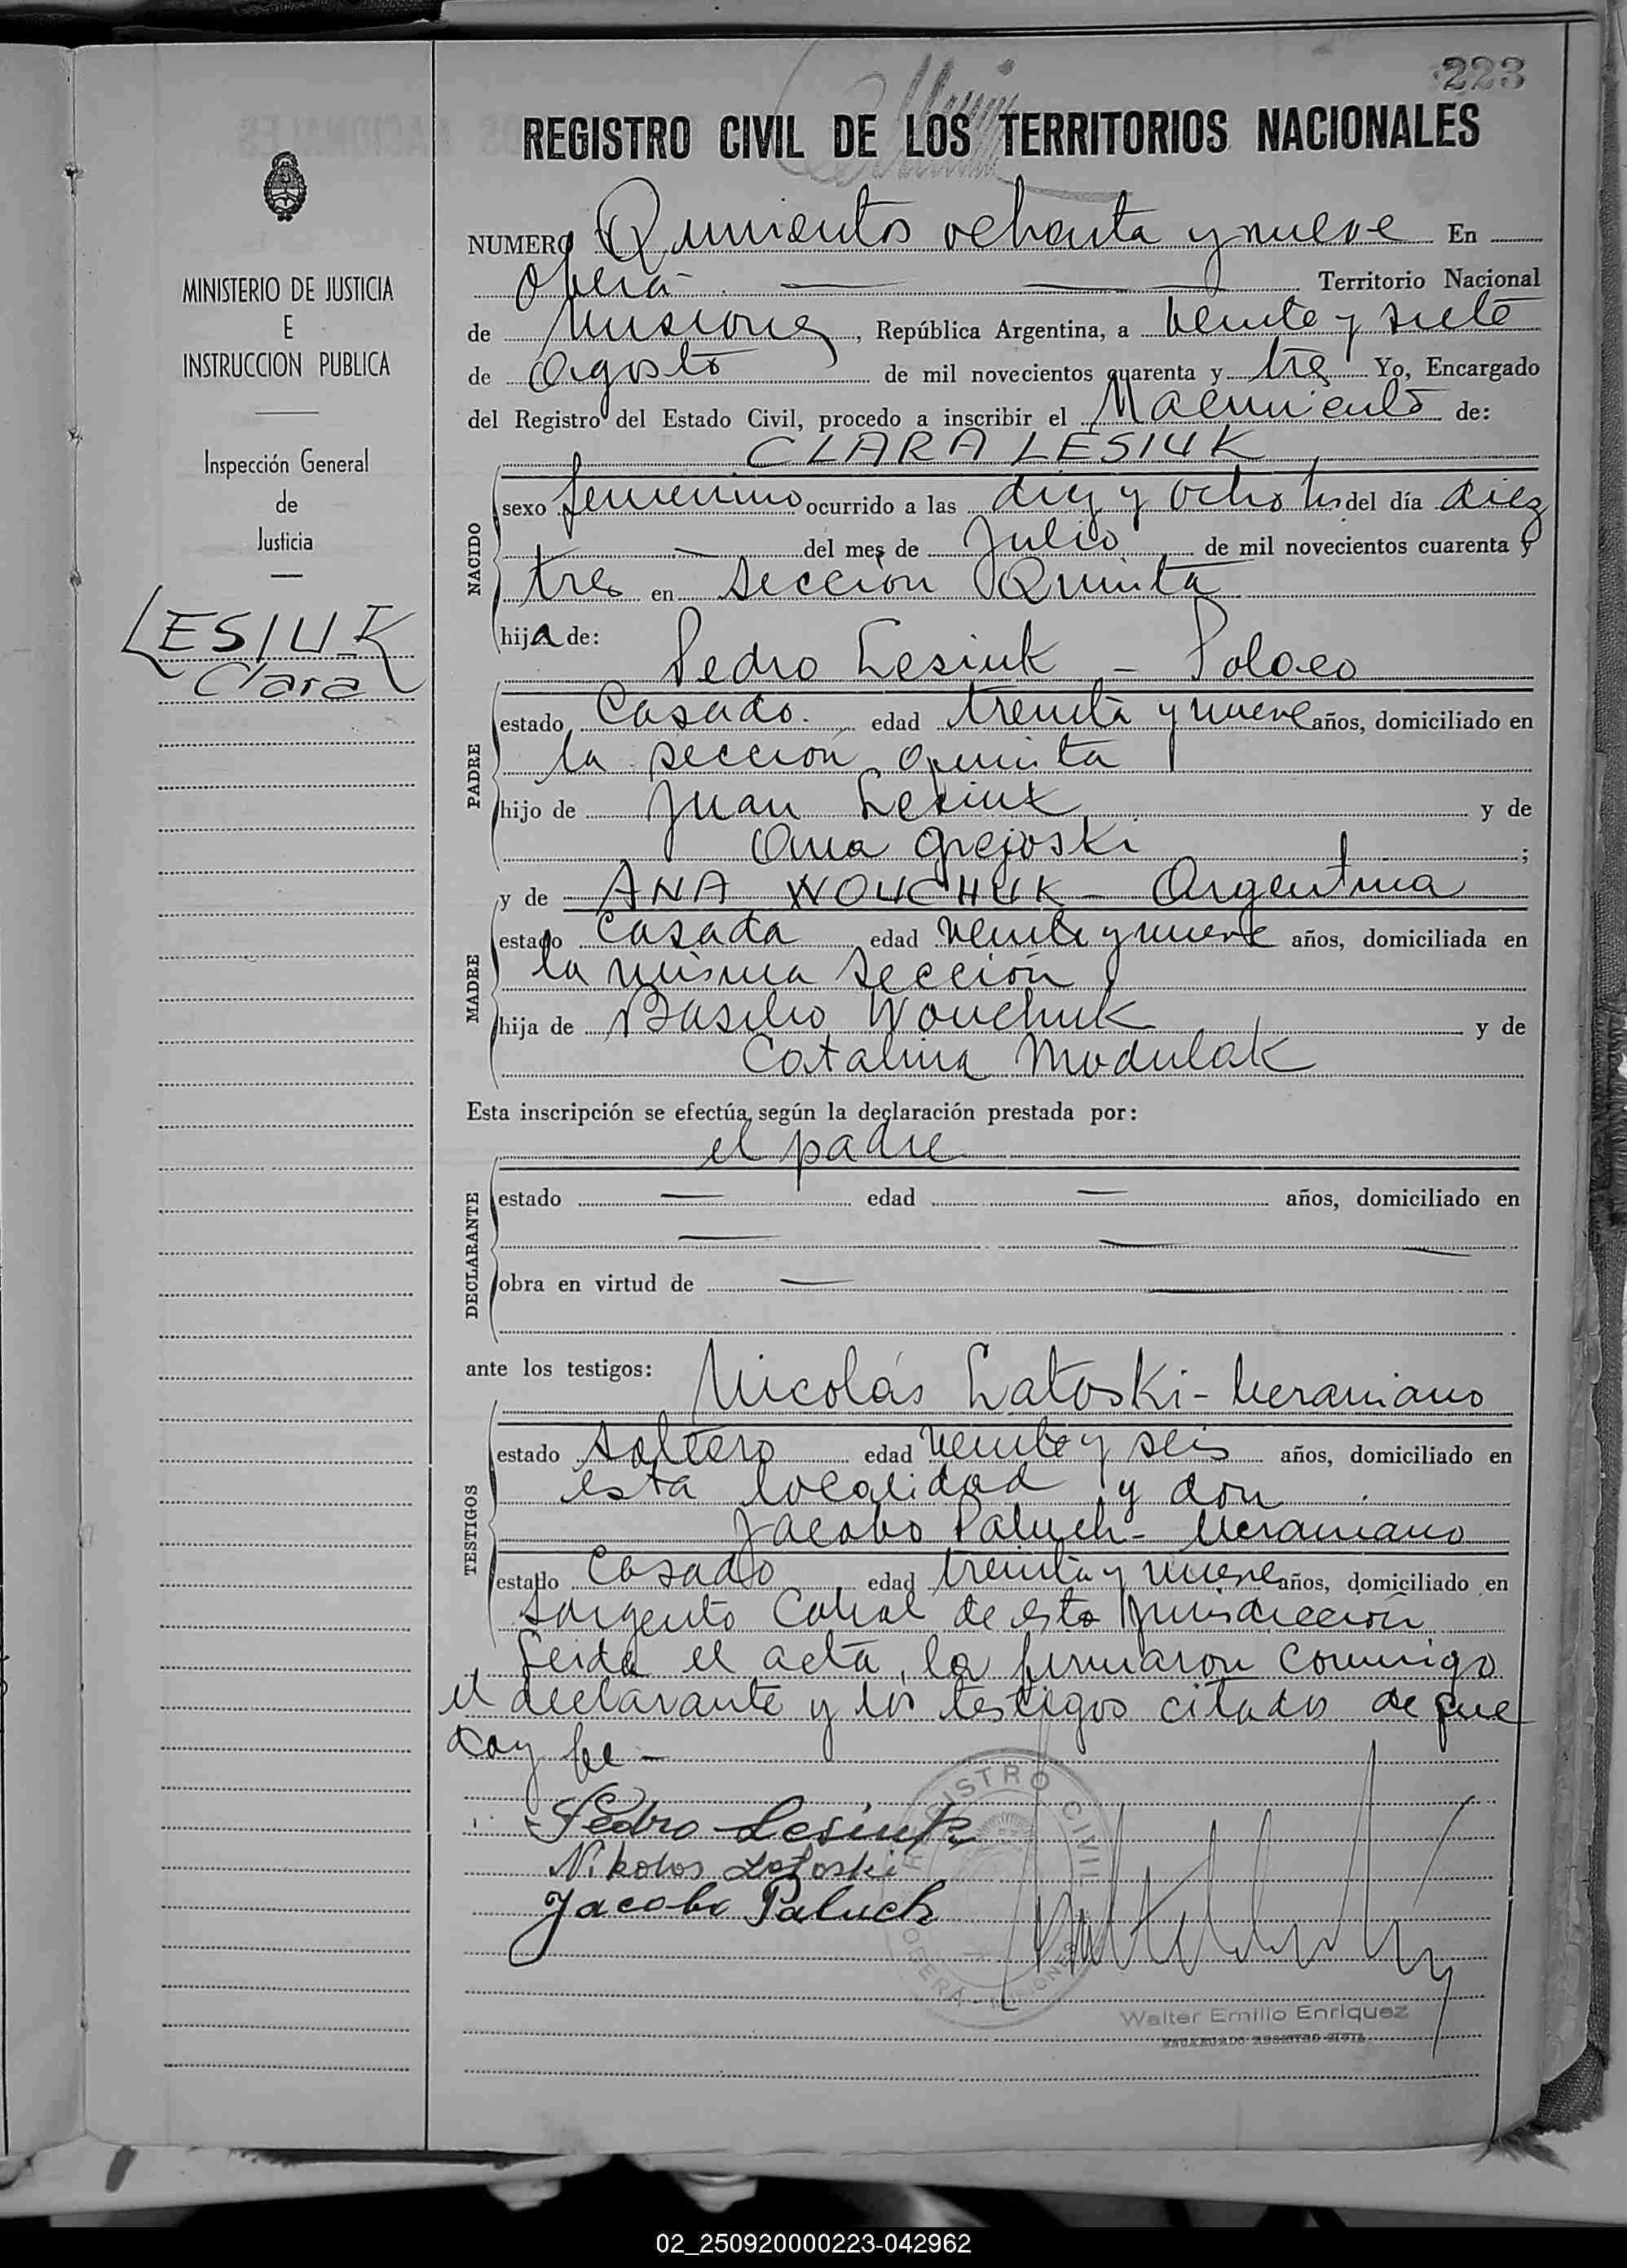 223
REGISTRO CIVIL DE LOS TERRITORIOS NACIONALES
MINISTERIO DE JUSTICIA
E
INSTRUCCION PUBLICA
Inspección General
de
Justicia
LESIUK
Clara
NUMERO Quinientos ochenta y nueve En
Oberá Territorio Nacional
de Misiones, República Argentina, a veinte y siete
de Agosto de mil novecientos cuarenta y tres Yo, Encargado
del Registro del Estado Civil, procedo a inscribir el Nacimiento de:
CLARA LESIUK
NACIDO
sexo femenino ocurrido a las diez y ocho hs del día diez
del mes de Julio de mil novecientos cuarenta y
tres en Sección Quinta
hija de:
Pedro Lesiuk - Polaco
PADRE
estado Casado. edad treinta y nueve años, domiciliado en
la sección quinta
hijo de Juan Lesiuk y de
Ana ;
y de ANA WOUCHUK - Argentina
MADRE
estado Casada edad veinte y nueve años, domiciliada en
la misma sección
hija de Basilio Wouchuk y de
Catalina Modulak
Esta inscripción se efectúa según la declaración prestada por:
el padre
DECLARANTE
estado — edad — años, domiciliado en
obra en virtud de —
ante los testigos: Nicolás Latoski - Ucraniano
TESTIGOS
estado Soltero edad veinte y seis años, domiciliado en
esta localidad y don
Jacobo Paluch - Ucraniano
estado Casado edad treinta y nueve años, domiciliado en
Sargento Cabral de esta jurisdicción
Leida el acta, la firmaron conmigo
el declarante y los testigos citados de que
doy fe -
Pedro Lesiuk
Nikolos Latoski
Jacobo Paluch
REGISTRO CIVIL
OBERA - MISIONES
Walter Emilio Enriquez
ENCARGADO REGISTRO CIVIL
02_250920000223-042962